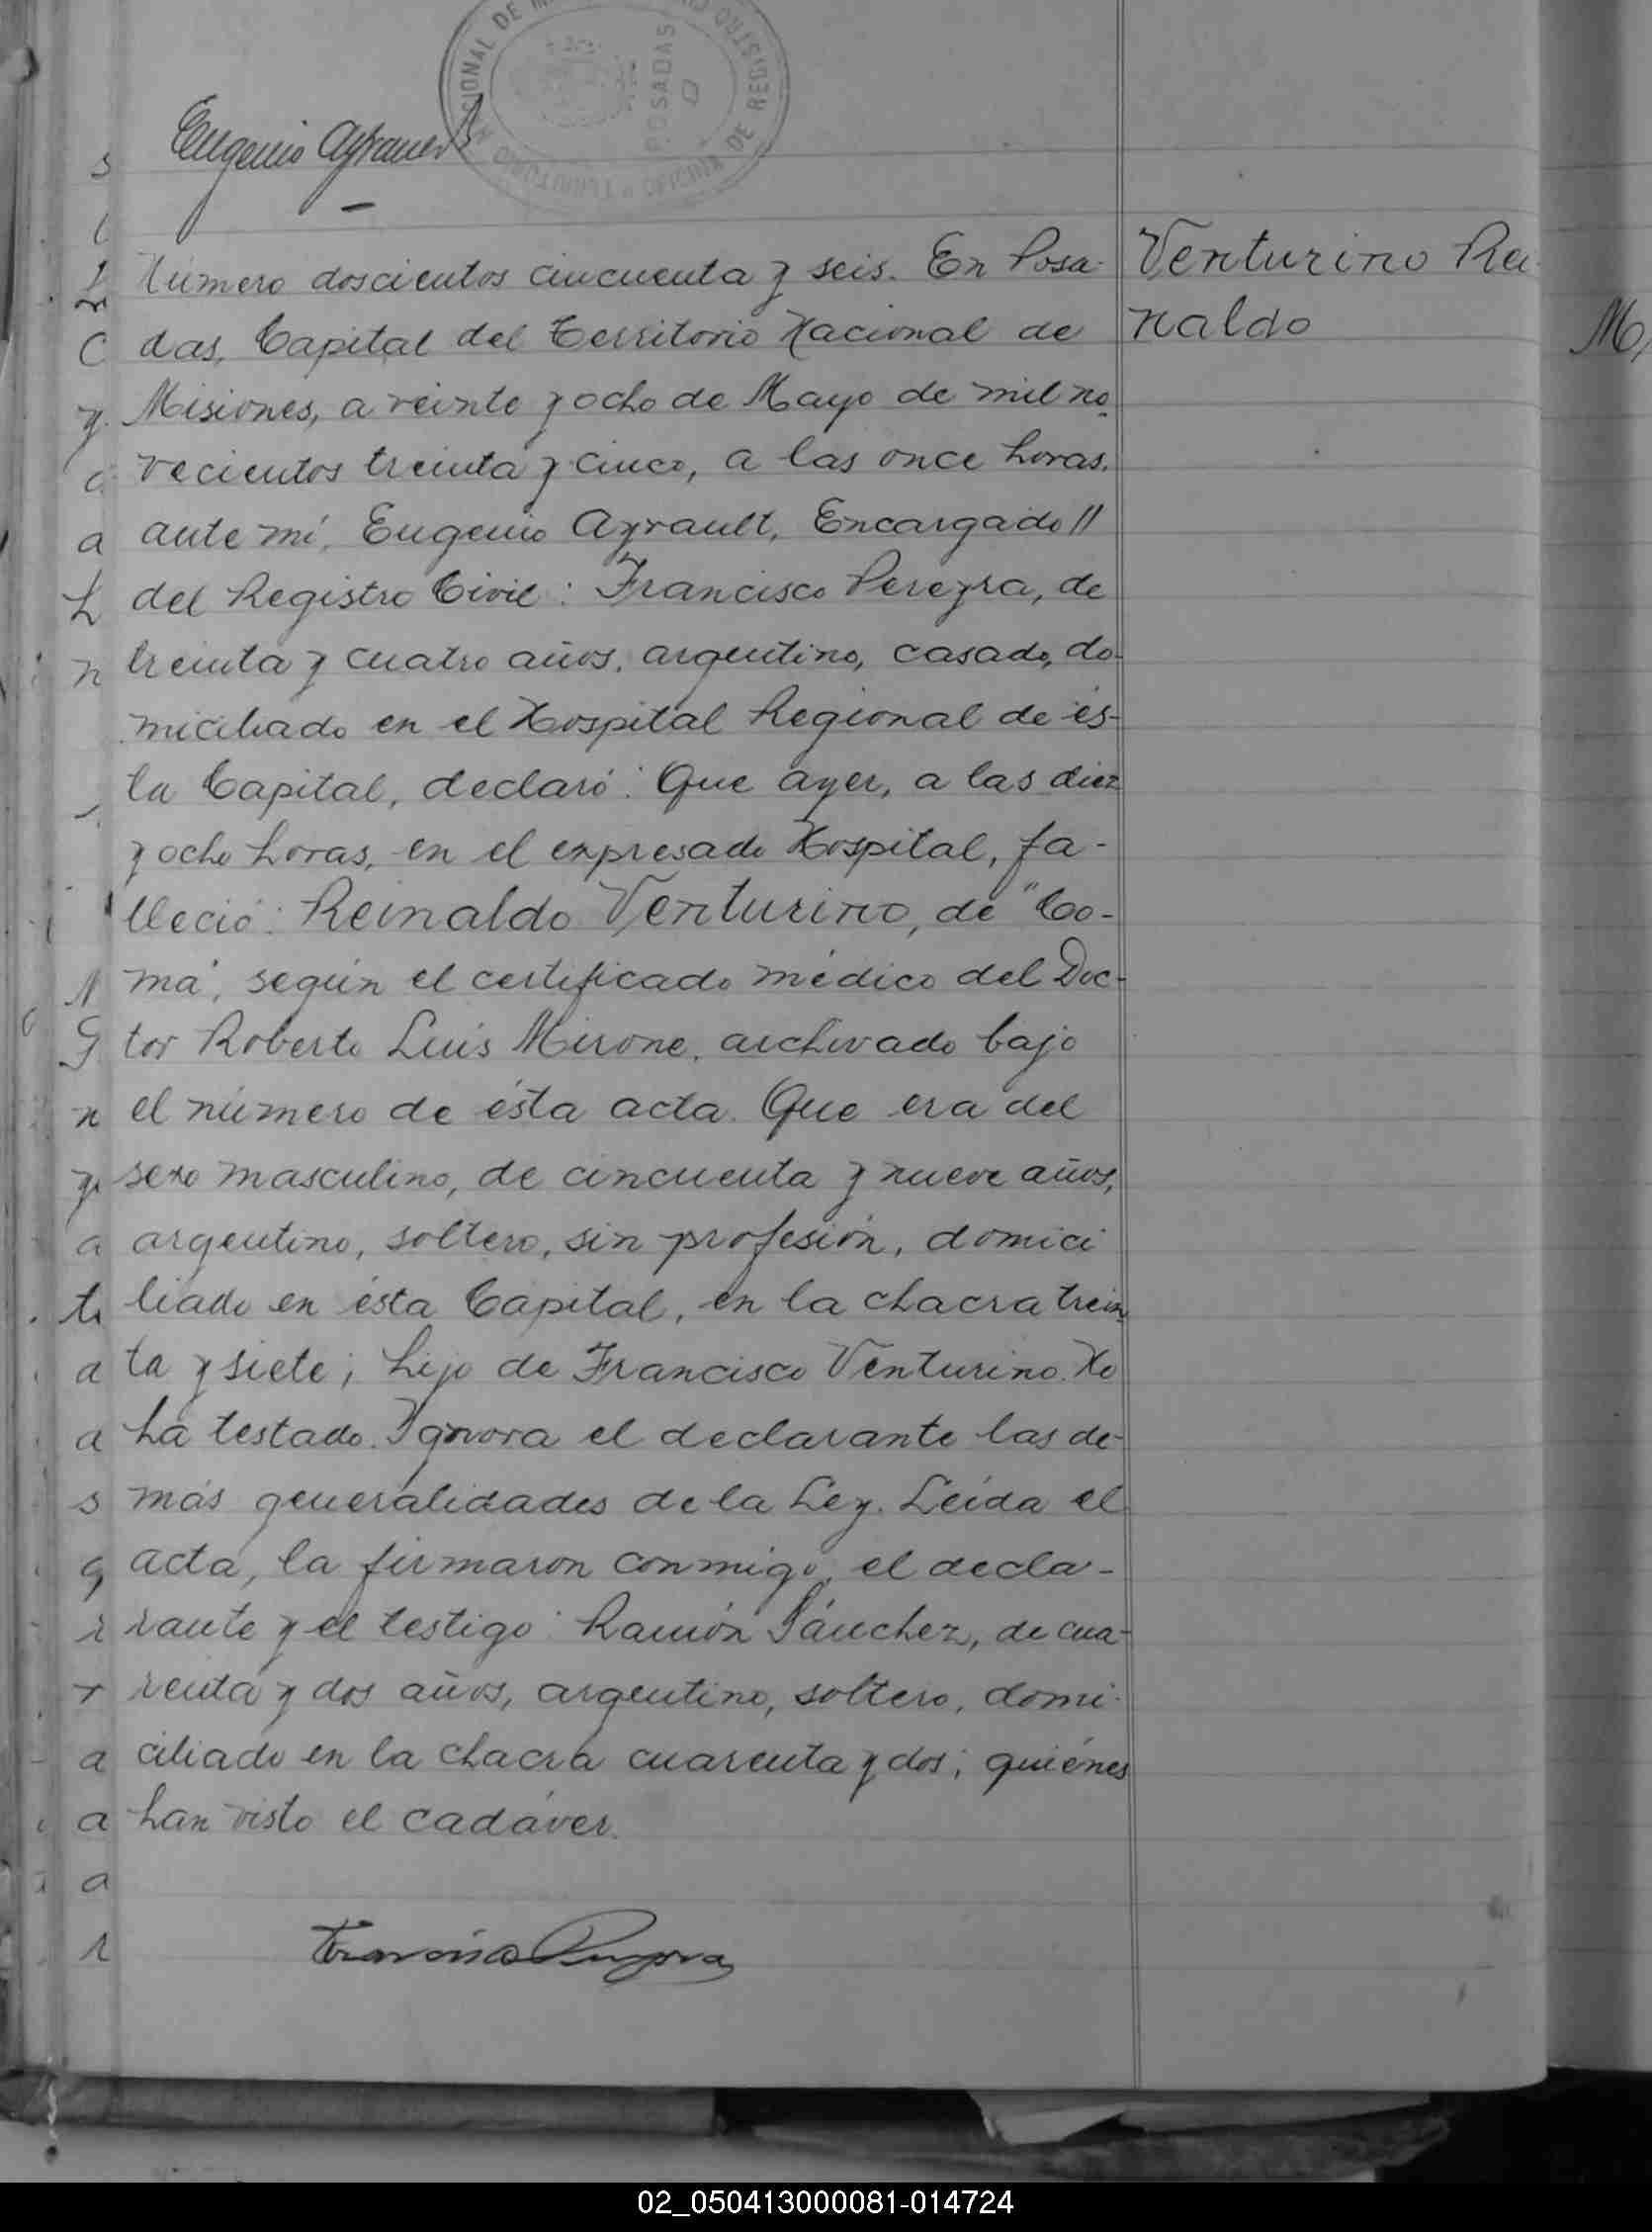 POSADAS
Eugenio Ayrault
Número doscientos cincuenta y seis. En Posa-
das, Capital del Territorio Nacional de
Misiones, a veinte y ocho de Mayo de mil no-
vecientos treinta y cinco, a las once horas,
ante mí, Eugenio Ayrault, Encargado //
del Registro Civil: Francisco Pereyra, de
treinta y cuatro años, argentino, casado, do-
miciliado en el Hospital Regional de és-
ta Capital, declaró: Que ayer, a las diez
y ocho horas, en el expresado Hospital, fa-
lleció: Reinaldo Venturino, de "Co-
ma", según el certificado médico del Doc-
tor Roberto Luis Mirone, archivado bajo
el número de ésta acta. Que era del
sexo masculino, de cincuenta y nueve años,
argentino, soltero, sin profesión, domici
liado en ésta Capital, en la chacra trein
ta y siete; hijo de Francisco Venturino. No
ha testado. Ignora el declarante las de-
más generalidades de la Ley. Leída el
acta, la firmaron conmigo, el decla-
rante y el testigo: Ramón Sánchez, de cua-
renta y dos años, argentino, soltero, domi-
ciliado en la chacra cuarenta y dos; quiénes
han visto el cadáver.
Francisco Pereyra
Venturino Rei-
naldo
02_050413000081-014724